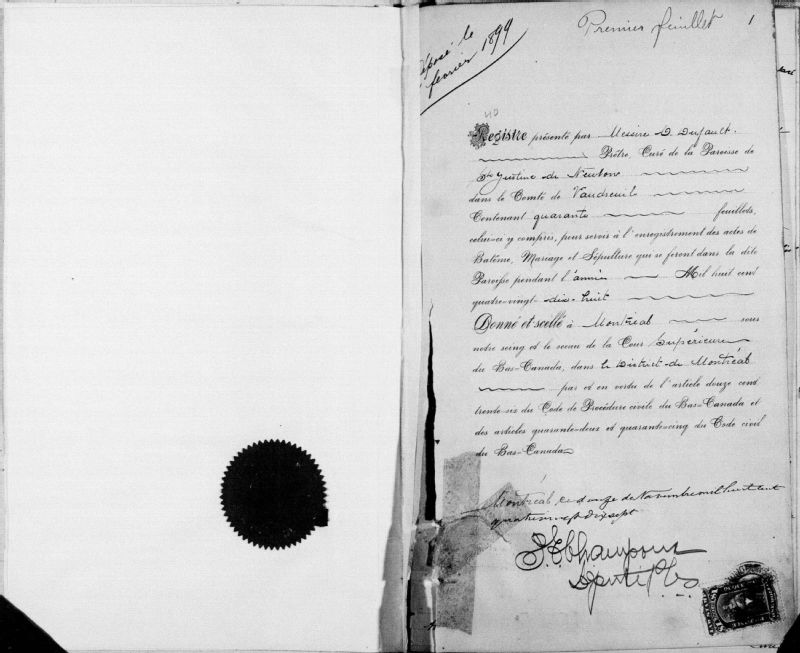 Premier feuillet 1
déposé le
février 1899
40
Registre présenté par Messire D Dufault
Prêtre, Curé de la Paroisse de
Ste Justine de Newton
dans le Comté de Vaudreuil
Contenant quarante feuillets,
celui-ci y compris, pour servir à l'enregistrement des actes de
Batême, Mariage et Sépulture qui se feront dans la dite
Paroisse pendant l'année Mil huit cent
quatre-vingt-dix-huit
Donné et scellé à Montréal sous
notre seing et le sceau de la Cour Supérieure
du Bas-Canada, dans le District de Montréal
par et en vertu de l'article douze cent
trente-six du Code de Procédure civile du Bas-Canada et
des articles quarante-deux et quarante-cinq du Code civil
du Bas-Canada
Montréal ce douze de Novembre mil huit cent
quatrevingt dixsept
Champoux
Député P.C.S.